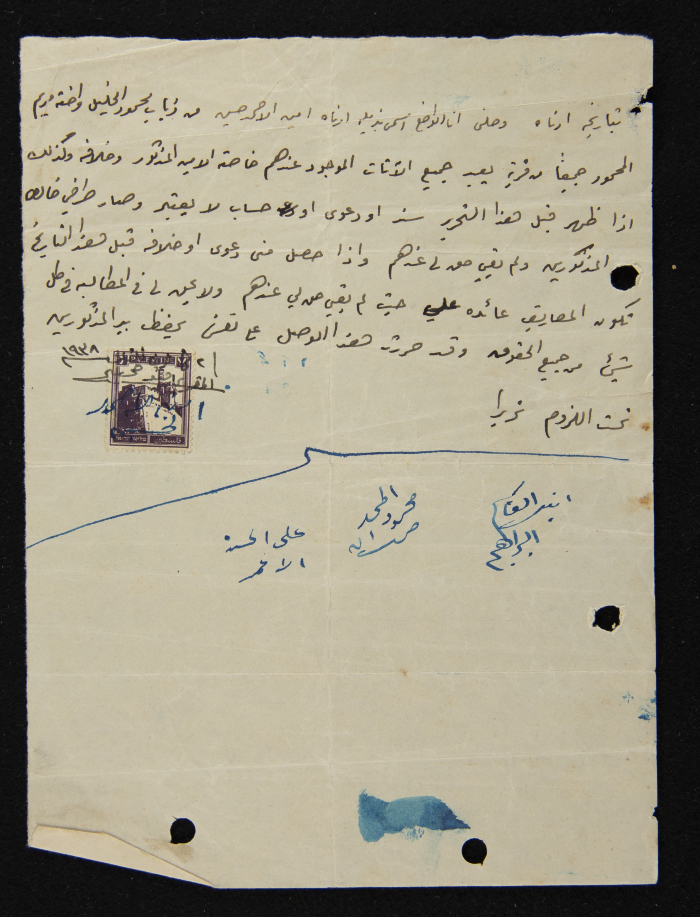 بتاريخه ادناه وصلني انا الواضع اسمي بذيله ادناه امين الاحمد حسين من ذياب محمود الخليل واخته مريم
المحمود جميعاً من قرية يعبد جميع الاثاث الموجود عندهم خاصة الامين المذكور وخلافه وكذلك
اذا ظهر قبل هذا التحرير سند او دعوى او حساب لا يعتبر وصار طرفي خالص
المذكورين ولم يبقى حق لي عندهم واذا حصل مني دعوى او خلافه قبل هذا التاريخ
تكون المصاريف عائده علي حيث لم يبقى حق لي عندهم ولا يحق لي في المطالبه في كل
شيئ من جميع الحقوق وقد حررت هذا الوصل على نفسي ليحفظ بيد المذكورين
تحت اللزوم تحريرا
١٩٣٨
محمود الحمد
ابراهيم
علي الحسن
الاحمد